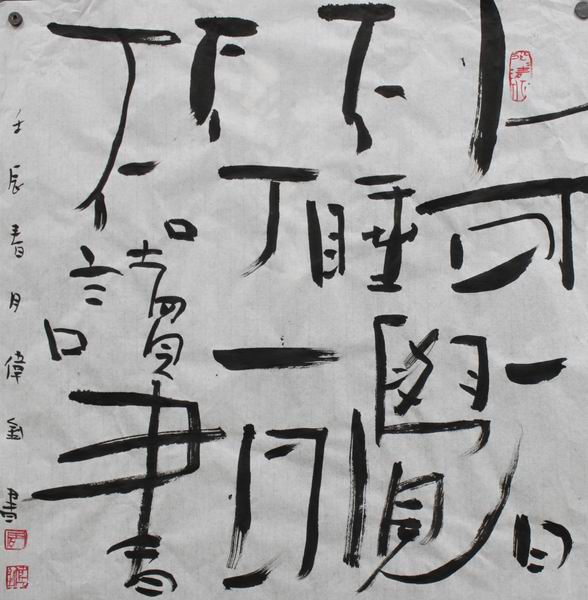 可一日
不睡覺
不可一月
不讀書
壬辰春月偉金書